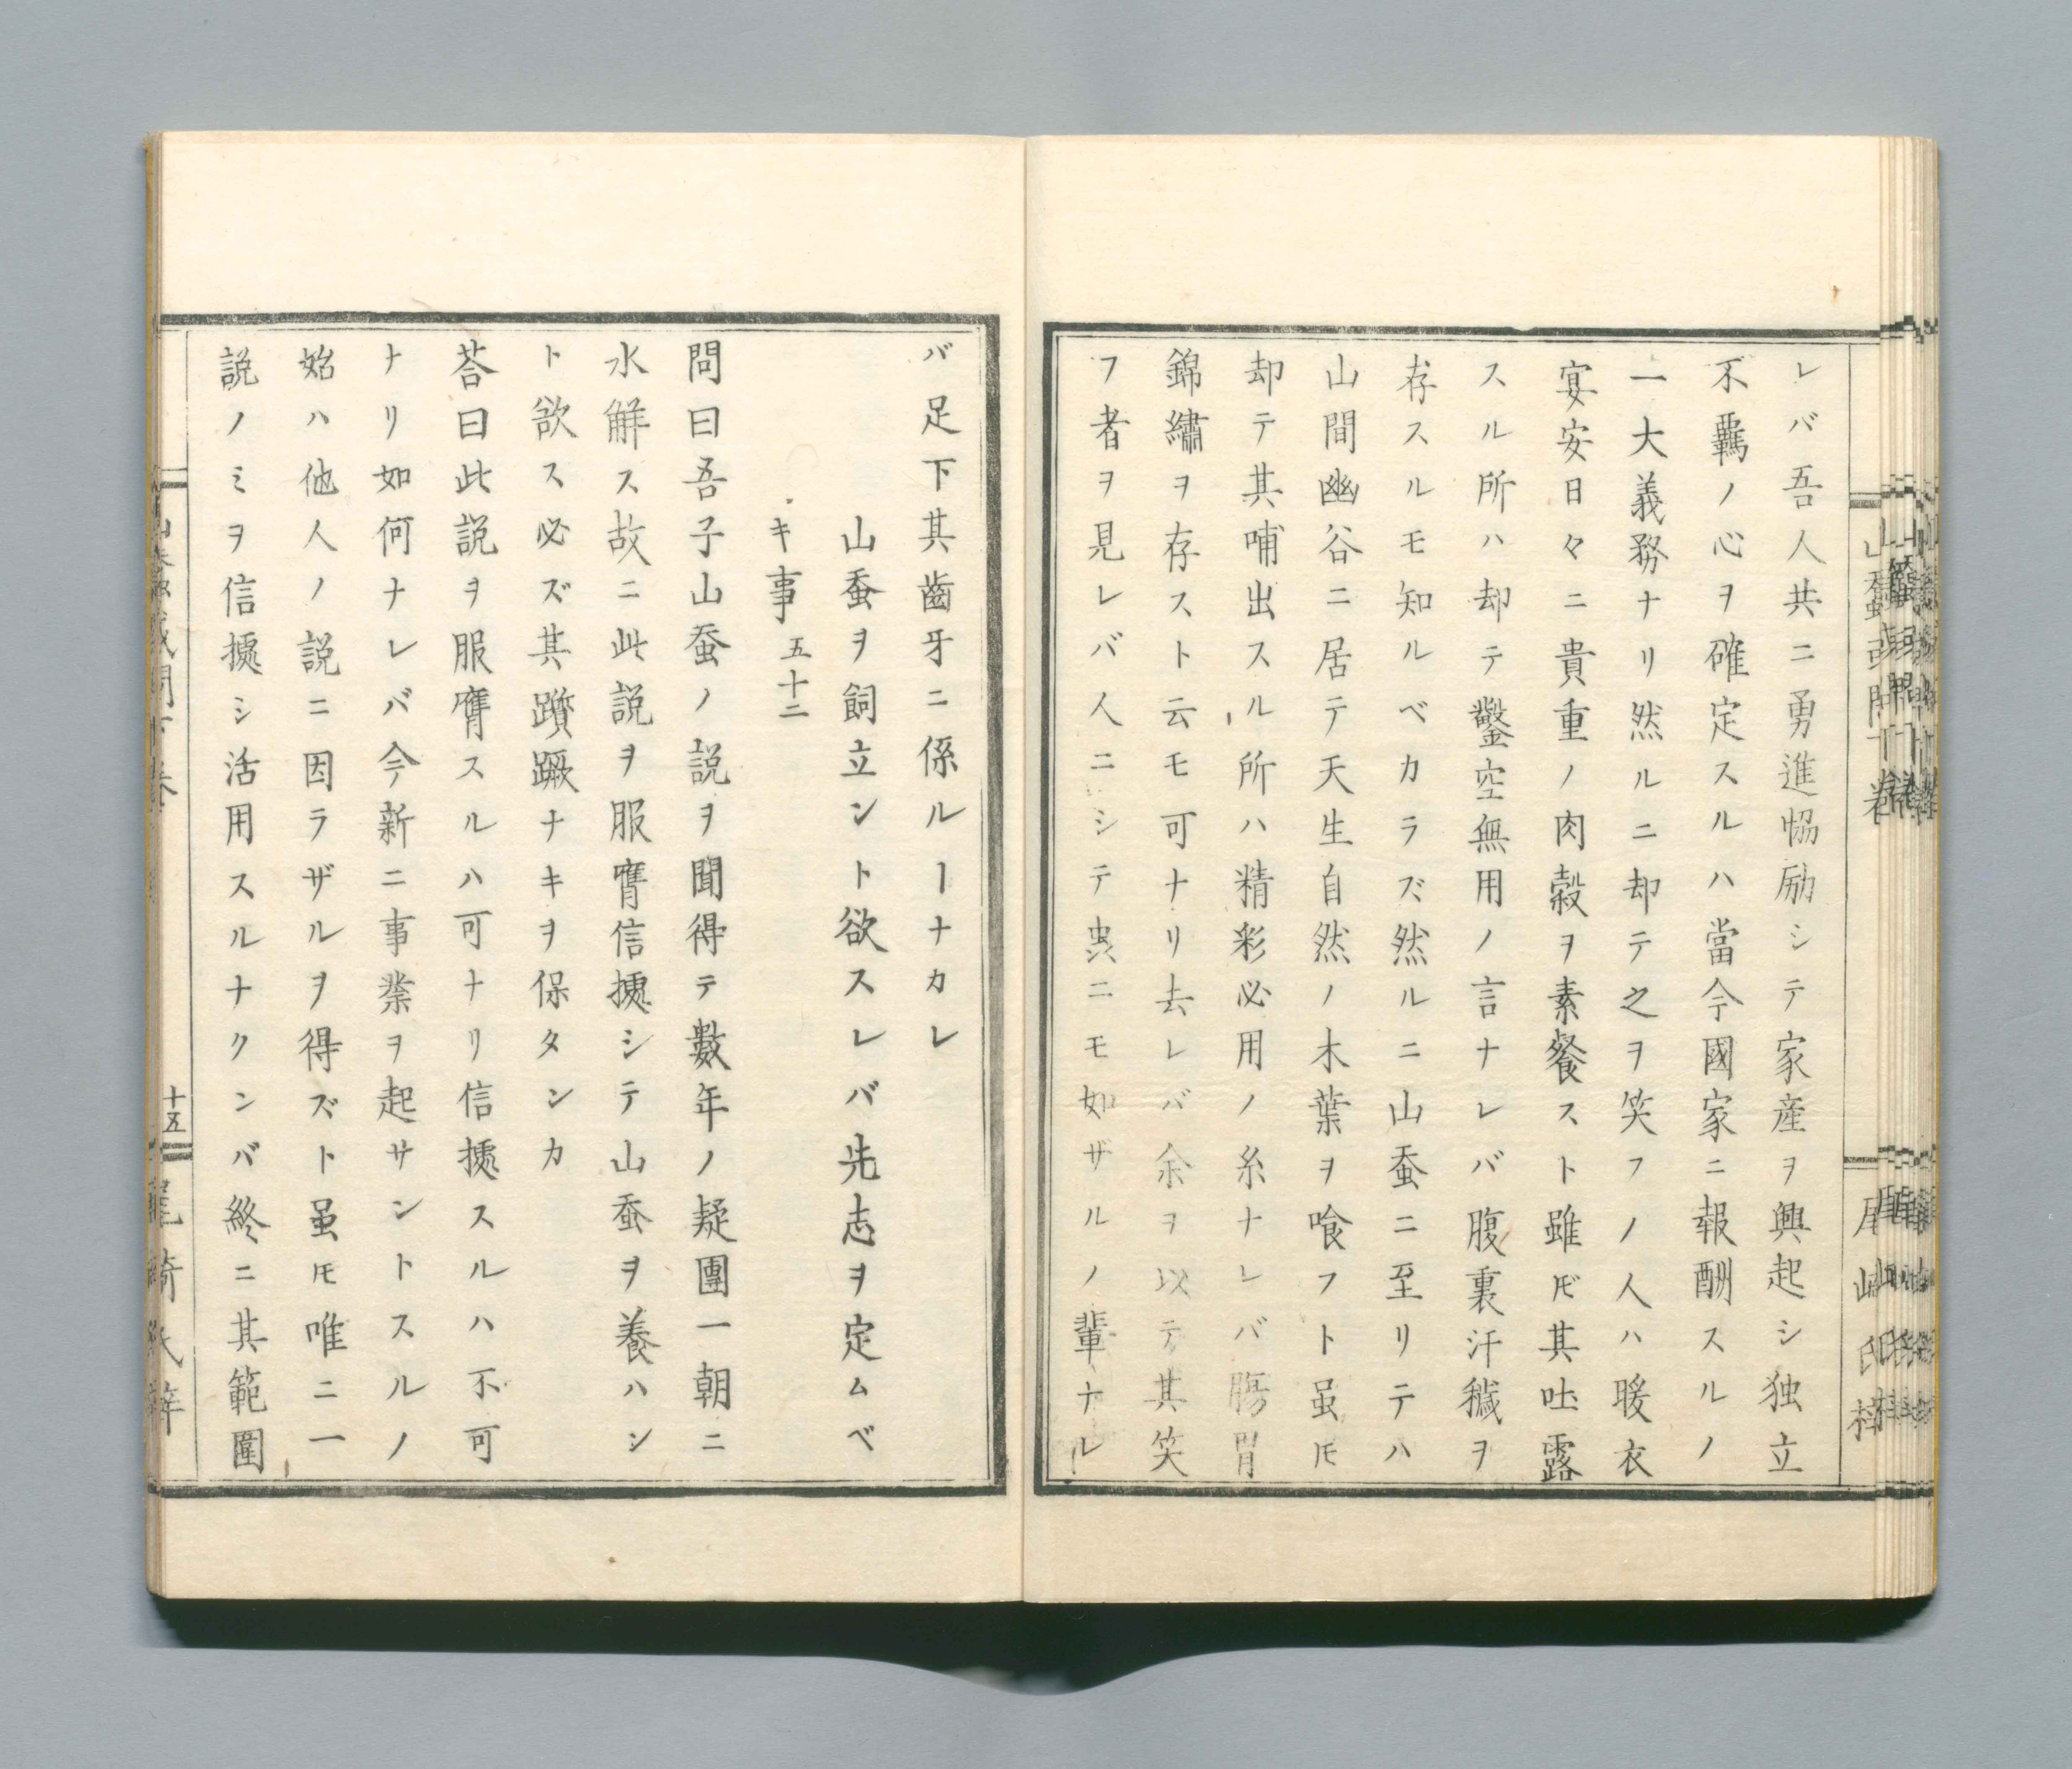 レバ吾人共ニ勇進協励シテ家産ヲ興起シ独立
不羈ノ心ヲ確定スルハ當今國家ニ報酬スルノ
一大義務ナリ然ルニ却テ之ヲ笑フノ人ハ暖衣
宴安日々ニ貴重ノ肉穀ヲ素餐スト雖𪜈其吐露
スル所ハ却テ鑿空無用ノ言ナレバ腹裏汗穢ヲ
存スルモ知ルベカラズ然ルニ山蚕ニ至リテハ
山間幽谷ニ居テ天生自然ノ木葉ヲ喰フト虽𪜈
却テ其哺出スル所ハ精彩必用ノ糸ナレバ膓胃
錦繡ヲ存スト云モ可ナリ去レバ余ヲ以テ其笑
フ者ヲ見レバ人ニシテ虫ニモ如ザルノ輩ナレ
バ足下其齒牙ニ係ルーナカレ
山蚕ヲ飼立ント欲スレバ先志ヲ定ムベ
キ事 五十二
問曰吾子山蚕ノ説ヲ聞得テ數年ノ疑團一朝ニ
氷解ス故ニ此説ヲ服膺信㨿シテ山蚕ヲ養ハン
ト欲ス必ズ其躓蹶ナキヲ保タンカ
荅曰此説ヲ服膺スルハ可ナリ信㨿スルハ不可
ナリ如何ナレバ今新ニ事業ヲ起サントスルノ
始ハ他人ノ説ニ因ラザルヲ得ズト虽𪜈唯ニ一
説ノミヲ信㨿シ活用スルナクンバ終ニ其範圍
十五